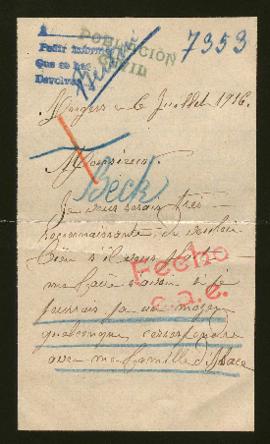 A
Pedir informe
Que se hac
Devolver
POBLACIÓN
CIVIL
7353
Angers le 6 Juillet 1916.
Monsieur.
Beck
Je vous serais très
reconnaissante de vouloir
bien s'il vous
me faire savoir si je
pourrais par un moyen
quelconque correspondre
avec ma famille d'Alsace
Fecho
c.a.e.